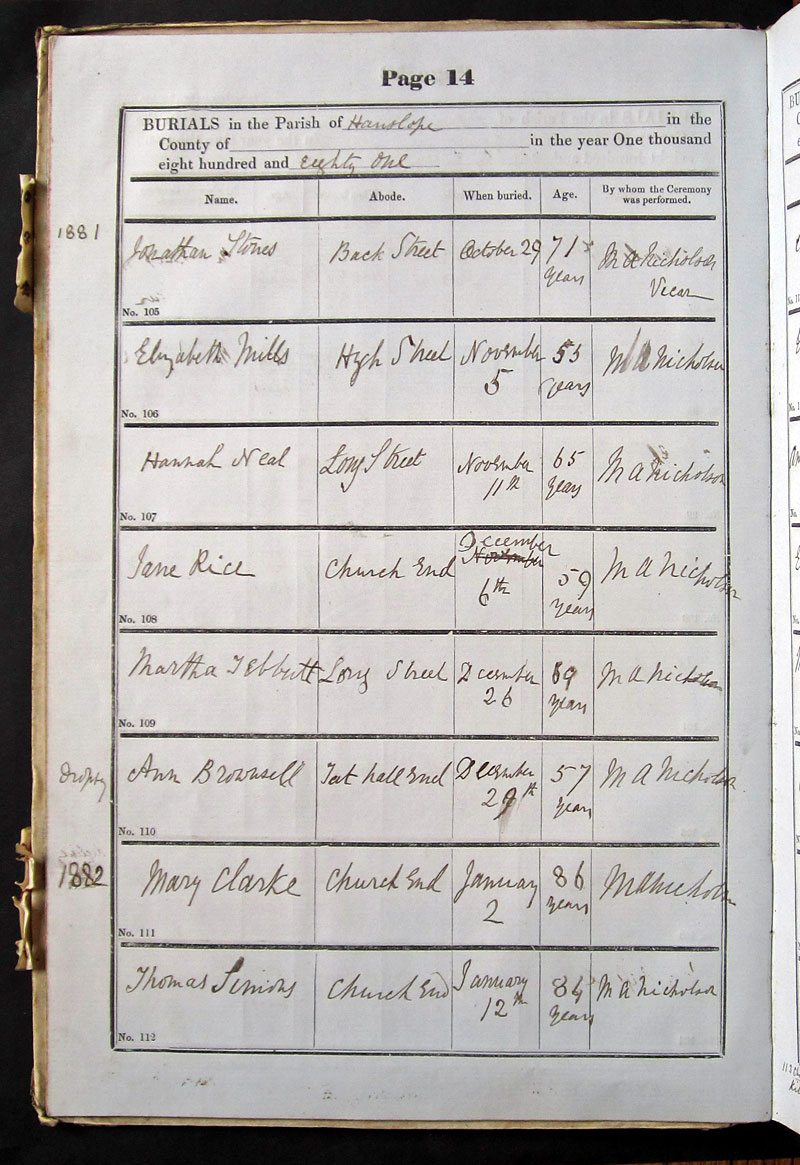 Page 14
BURIALS in the Parish of Hanslope in the
County of in the year One thousand
eight hundred and eighty one
Name. Abode. When buried. Age. By whom the Ceremony was performed.
1881
Jonathan Stones Back Street October 29 71 years M A Nicholson Vicar
No. 105
Elizabeth Mills High Street November 5 55 years M A Nicholson
No. 106
Hannah Neal Long Street November 11th 65 years M A Nicholson
No. 107
Jane Rice Church End December November 6th 59 years M A Nicholson
No. 108
Martha Tebbutt Long Street December 26 69 years M A Nicholson
No. 109
dropsy
Ann Brownsell Tat hall End December 29th 57 years M A Nicholson
No. 110
1882
Mary Clarke Church End January 2 86 years M A Nicholson
No. 111
Thomas Simons Church End January 12th 84 years M A Nicholson
No. 112